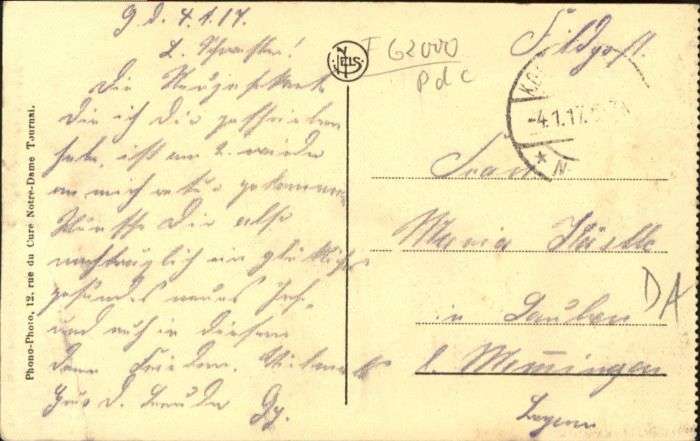 G. d. 4.1.17.
L. Schwester!
Die Neujahrskarte
die ich Dir geschrieben
habe, ist am 2. wieder
an mich retur gekommen
Wünsche Dir also
nachträglich ein glückliches
gesundes neues Jahr,
und auch in diesem
dann Frieden.
Gruß d. Bruder Gg.
Phono-Photo, 12, rue du Cure Notre-Dame Tournai.
NELS
F 62000
pdc
Feldpost.
K.D.
-4.1.17.
N
Frau
Maria Küstle
in Lauben
b. Memmingen
Bayern
DA